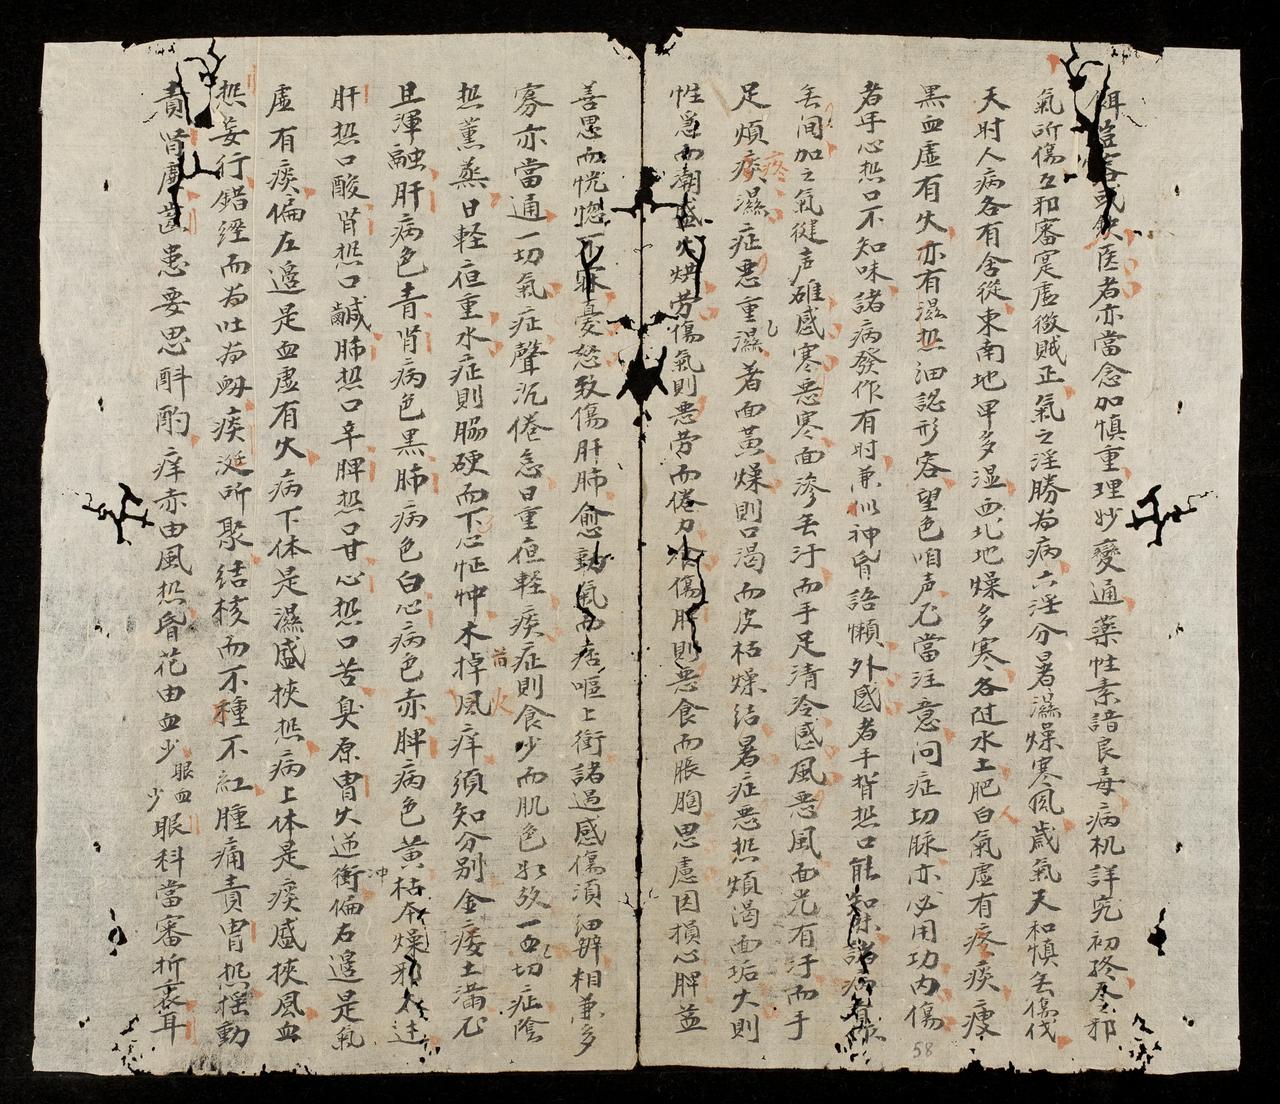 醫者亦當念加慎重理妙變通藥性素諳良毒病机詳究初終冬邪
氣所傷五邪審寔虛微賊正氣之淫勝為病六淫分暑濕燥寒風歲氣天和慎無傷伐
天时人病各有舍從東南地卑多湿西北地燥多寒各随水土肥白氣虛有疼痰瘦
黑血虛有火亦有滋热細認形容望色咱声尤當注意问症切脉亦必用功内傷
者手心热口不知味諸病發作有时兼似神昏語懒外感者手背热口能知味諸病
無间加之氣徤声碓感寒恶寒面渗無汗而手足清冷感風恶風面光有汗而手
足煩痰疼濕症恶重濕著面黃燥則口渴而皮枯燥结暑症恶热煩渴面垢火則
性急而潮盛火烘劳傷氣則恶劳而倦力食傷肝則恶食而脹胸思慮因損心脾益
善思而恍惚不寐憂怒致傷肝肺愈動氣而痞嘔上衝諸過感傷須細辨相兼多
寡亦當通一切氣症聲沉倦怠日重疸輕痰症則食少而肌色如故一切血症陰
热薰蒸日軽疸重水症則腸硬而下心怔忡木掉風痒須知分别金痿土满尤
且渾融肝病色青肾病色黑肺病色白心病色赤脾病色黄枯本燥邪火迬
肝热口酸肾热口鹹肺热口辛脾热口甘心热口苦臭原胃火逆衝偏右邊是氣
冲
虛有痰偏左邊是血虛有火病下体是濕盛挾热病上体是痰盛挾風血
热妄行錯經而为吐为衂痰涎所聚結核而不種不紅腫痛責胃热摇動
責肾虛齒患要思斟酌痒亦由風热昏花由血少眼血少眼科當審折衷耳
58